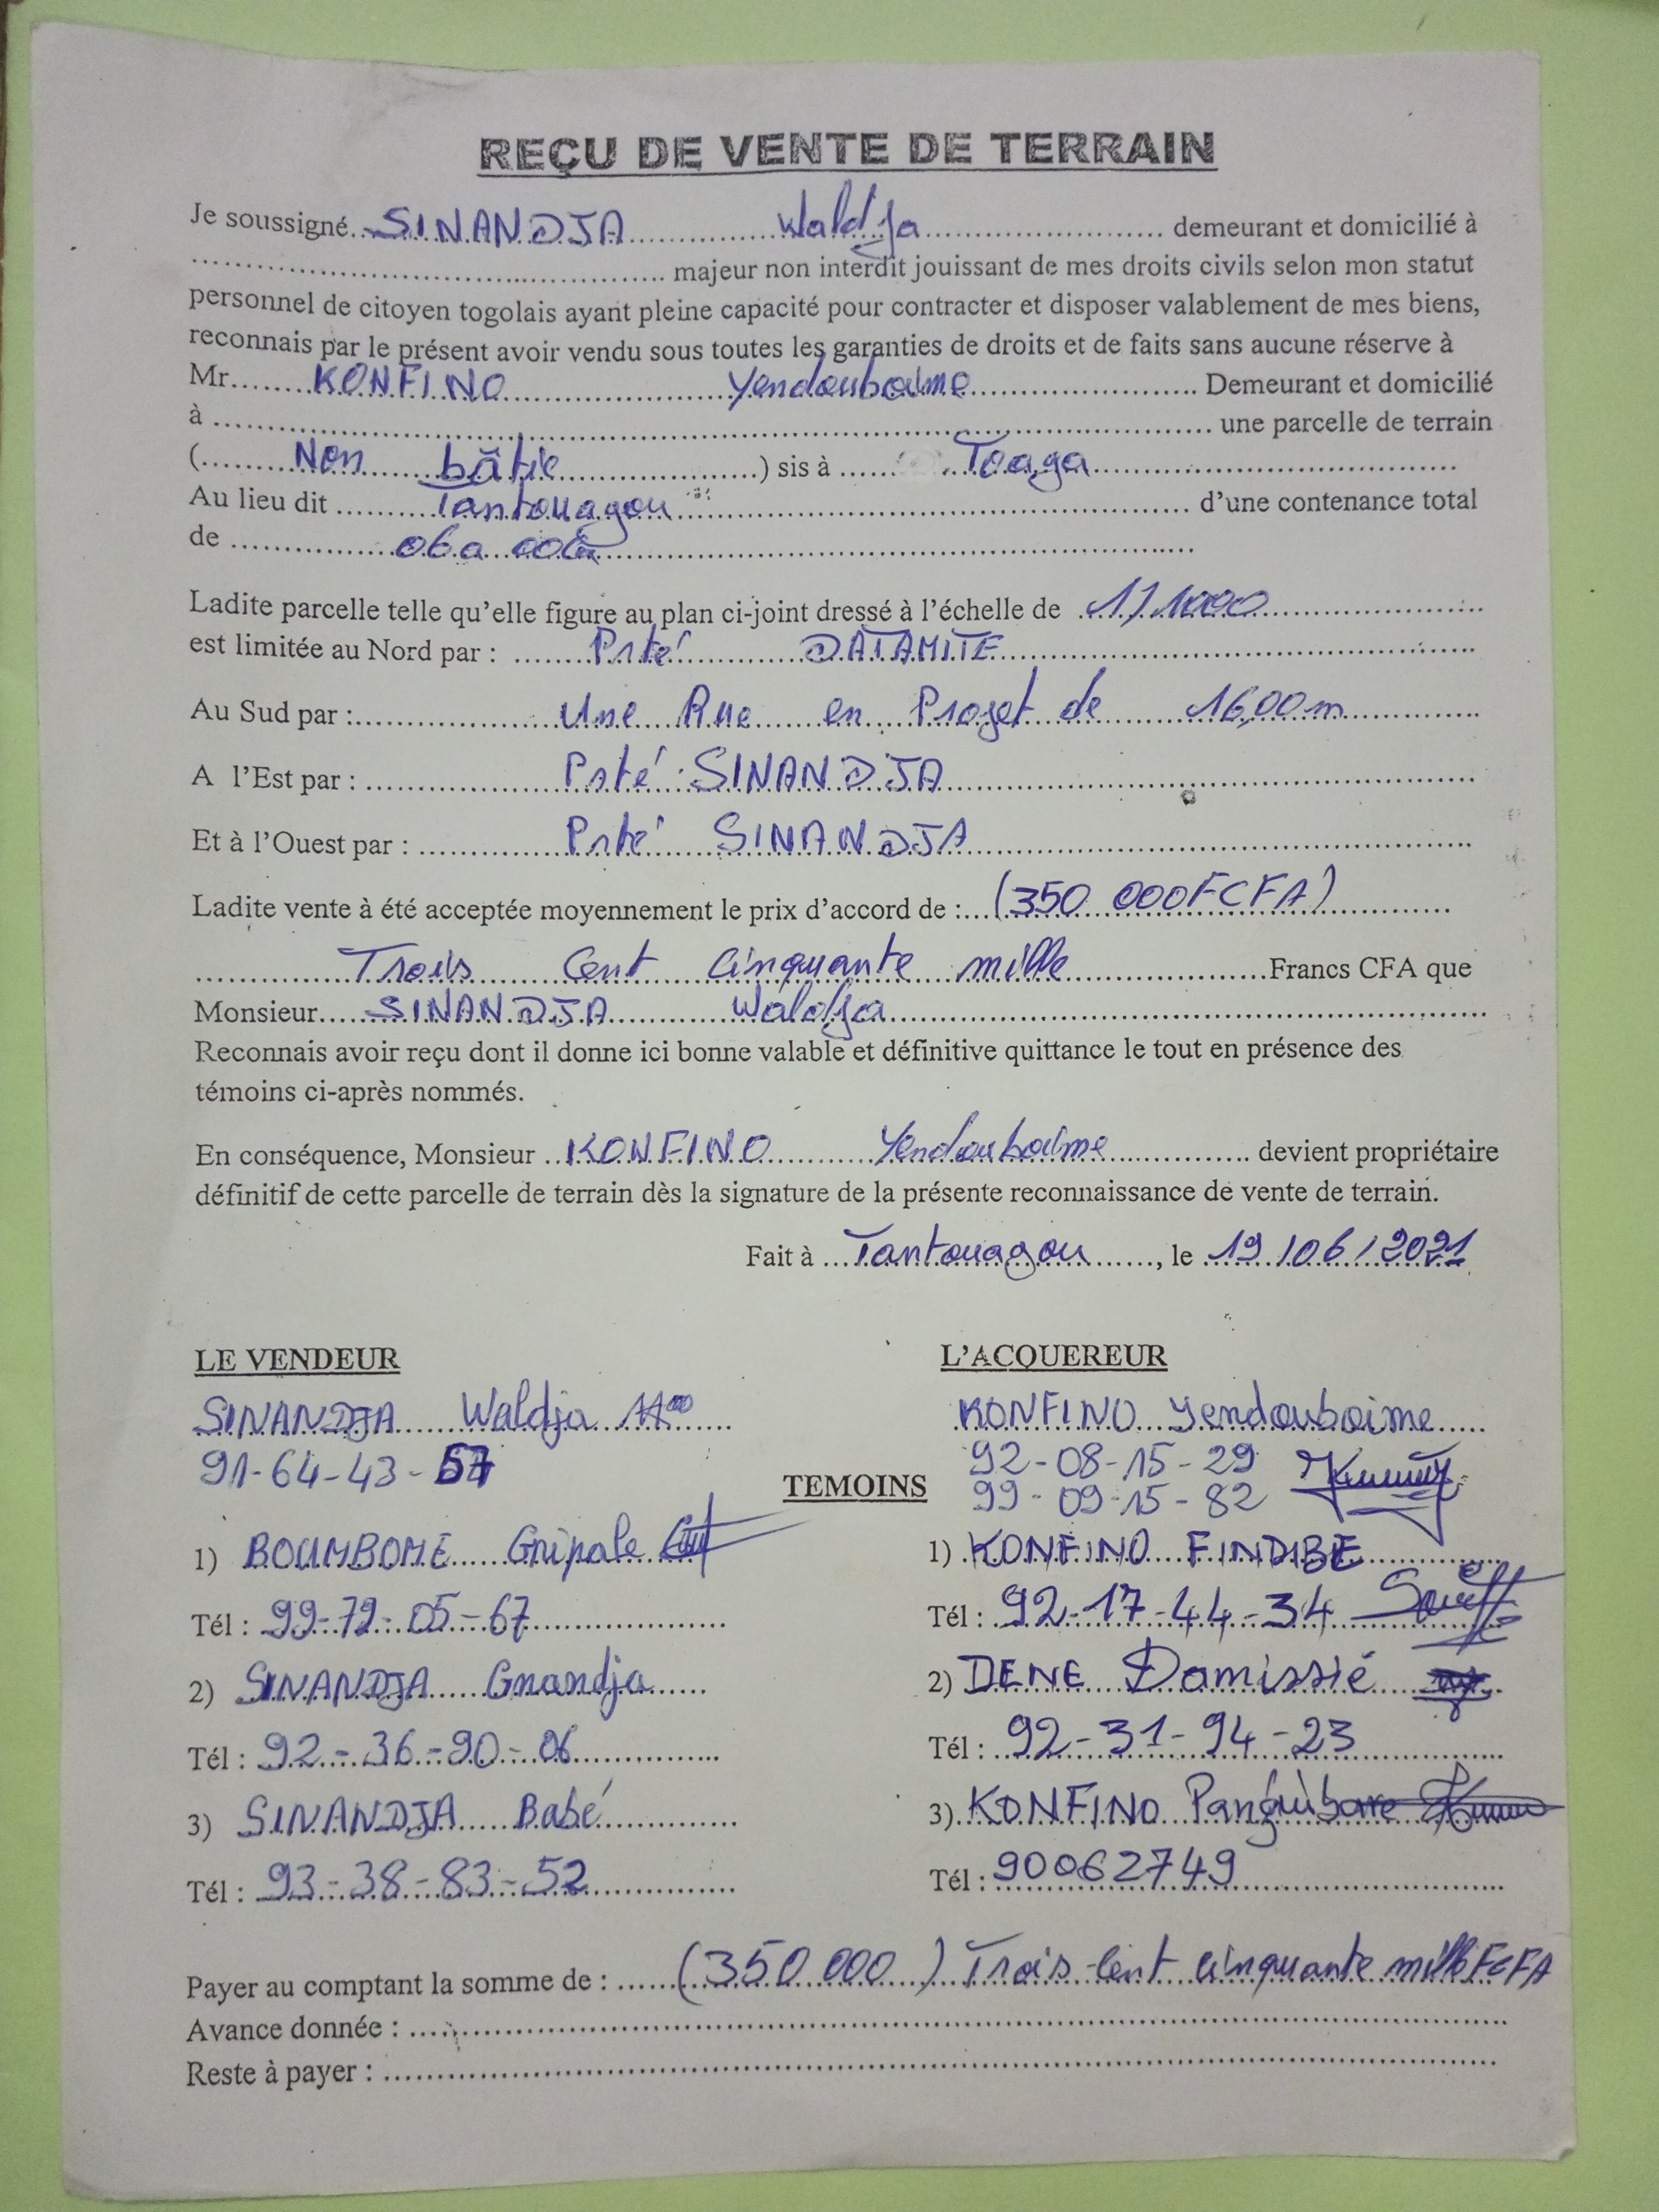 REÇU DE VENTE DE TERRAIN
Je soussigné SINANDJA Waldja demeurant et domicilié à
majeur non interdit jouissant de mes droits civils selon mon statut
personnel de citoyen togolais ayant pleine capacité pour contracter et disposer valablement de mes biens,
reconnais par le présent avoir vendu sous toutes les garanties de droits et de faits sans aucune réserve à
Mr KONFINO Yendouboime Demeurant et domicilié
à une parcelle de terrain
( Non bâtie ) sis à Toaga
Au lieu dit Tantouagou d'une contenance total
de 06a
Ladite parcelle telle qu'elle figure au plan ci-joint dressé à l'échelle de 1/1000
est limitée au Nord par : Prté DATAMITE
Au Sud par : Une Rue en Projet de 16,00m
A l'Est par : Prté : SINANDJA
Et à l'Ouest par : Prté SINANDJA
Ladite vente à été acceptée moyennement le prix d'accord de : (350 000FCFA)
Trois Cent Cinquante mille Francs CFA que
Monsieur SINANDJA Waldja
Reconnais avoir reçu dont il donne ici bonne valable et définitive quittance le tout en présence des
témoins ci-après nommés.
En conséquence, Monsieur KONFINO Yendouboime devient propriétaire
définitif de cette parcelle de terrain dès la signature de la présente reconnaissance de vente de terrain.
Fait à Tantouagou, le 19/06/2021
LE VENDEUR
SINANDJA Waldja
91-64-43-57
L'ACQUEREUR
KONFINO Yendouboime
92-08-15-29
99-09-15-82
TEMOINS
1) BOUMBOME Gnipale
Tél : 99-79-05-67
2) SINANDJA Gnandja
Tél : 92-36-90-06
3) SINANDJA Babé
Tél : 93-38-83-52
1) KONFINO FINDIBE
Tél : 92-17-44-34
2) DENE Damissié
Tél : 92-31-94-23
3) KONFINO Panguibare
Tél : 90062749
Payer au comptant la somme de : (350 000) Trois Cent Cinquante mille FCFA
Avance donnée :
Reste à payer :